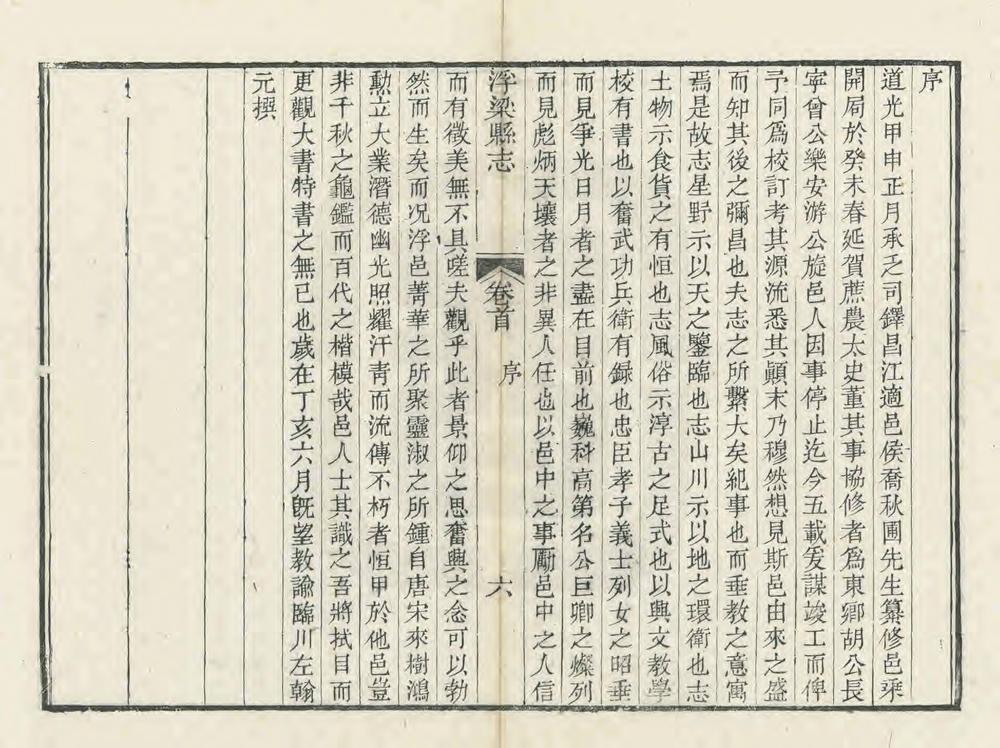 序
道光甲申正月承乏司鐸昌江適邑侯喬秋圃先生纂修邑乘
開局於癸未春延賀蔗農太史董其事協修者爲東鄉胡公長
寧曾公樂安游公旋邑人因事停止迄今五載爰謀竣工而俾
予同爲校訂考其源流悉其顛末乃穆然想見斯邑由來之盛
而知其後之彌昌也夫志之所繫大矣紀事也而垂教之意寓
焉是故志星野示以天之鑒臨也志山川示以地之環衛也志
土物示食貨之有恒也志風俗示淳古之足式也以興文教學
校有書也以奮武功兵衛有録也忠臣孝子義士列女之昭垂
而見爭光日月者之盡在目前也巍科高第名公巨卿之燦列
而見彪炳天壤者之非異人任也以邑中之事勵邑中之人信
浮梁縣志
卷首
序
六
而有徵美無不具嗟夫觀乎此者景仰之思奮興之念可以勃
然而生矣而况浮邑菁華之所聚靈淑之所鍾自唐宋來樹鴻
勳立大業潛德幽光照耀汗青而流傳不朽者恒甲於他邑豈
非千秋之龜鑑而百代之楷模哉邑人士其識之吾將拭目而
更觀大書特書之無已也歲在丁亥六月既望教諭臨川左翰
元撰